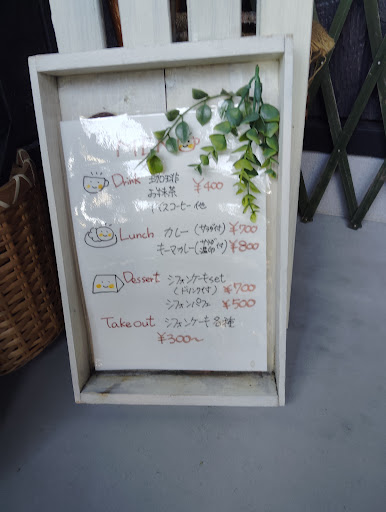 Drink 珈琲 ¥400
お抹茶
バスコーヒー他
Lunch カレー(サラダ付) ¥700
キーマカレー(サラダ付) ¥800
Dessert シフォンケーキset
(ドリンク付) ¥700
シフォンパフェ ¥500
Takeout シフォンケーキ各種
¥300〜